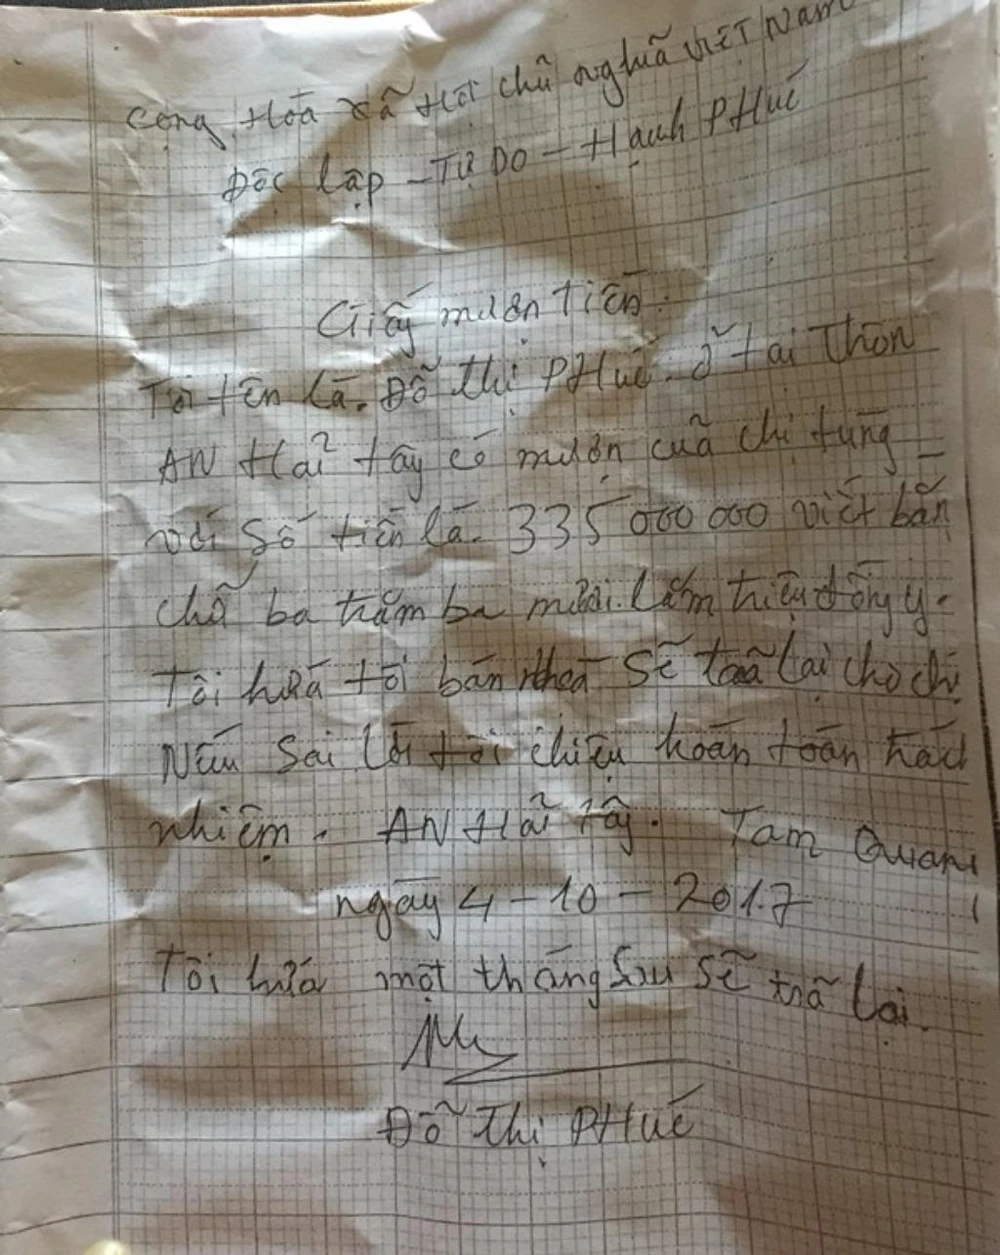 Cộng Hòa xã Hội chủ nghĩa VIỆT Nam
Độc lập - Tự DO - Hạnh PHúc
Giấy mượn Tiền.
Tôi tên là. Đỗ thị PHúc. ở tại Thôn
AN Hải tây có mượn của chị tùng
với Số tiền là. 335 000 000 viết bằn
chữ ba trăm ba mươi. lăm triệu đồng y.
Tôi hứa tôi bán nhà Sẽ trả lại cho chị
Nếu Sai lời tôi chiệu hoàn toàn trách
nhiệm. AN Hải Tây. Tam Quan
ngày 4 - 10 - 2017
Tôi hứa một tháng Sau sẽ trã lại.
Đỗ thị PHúc